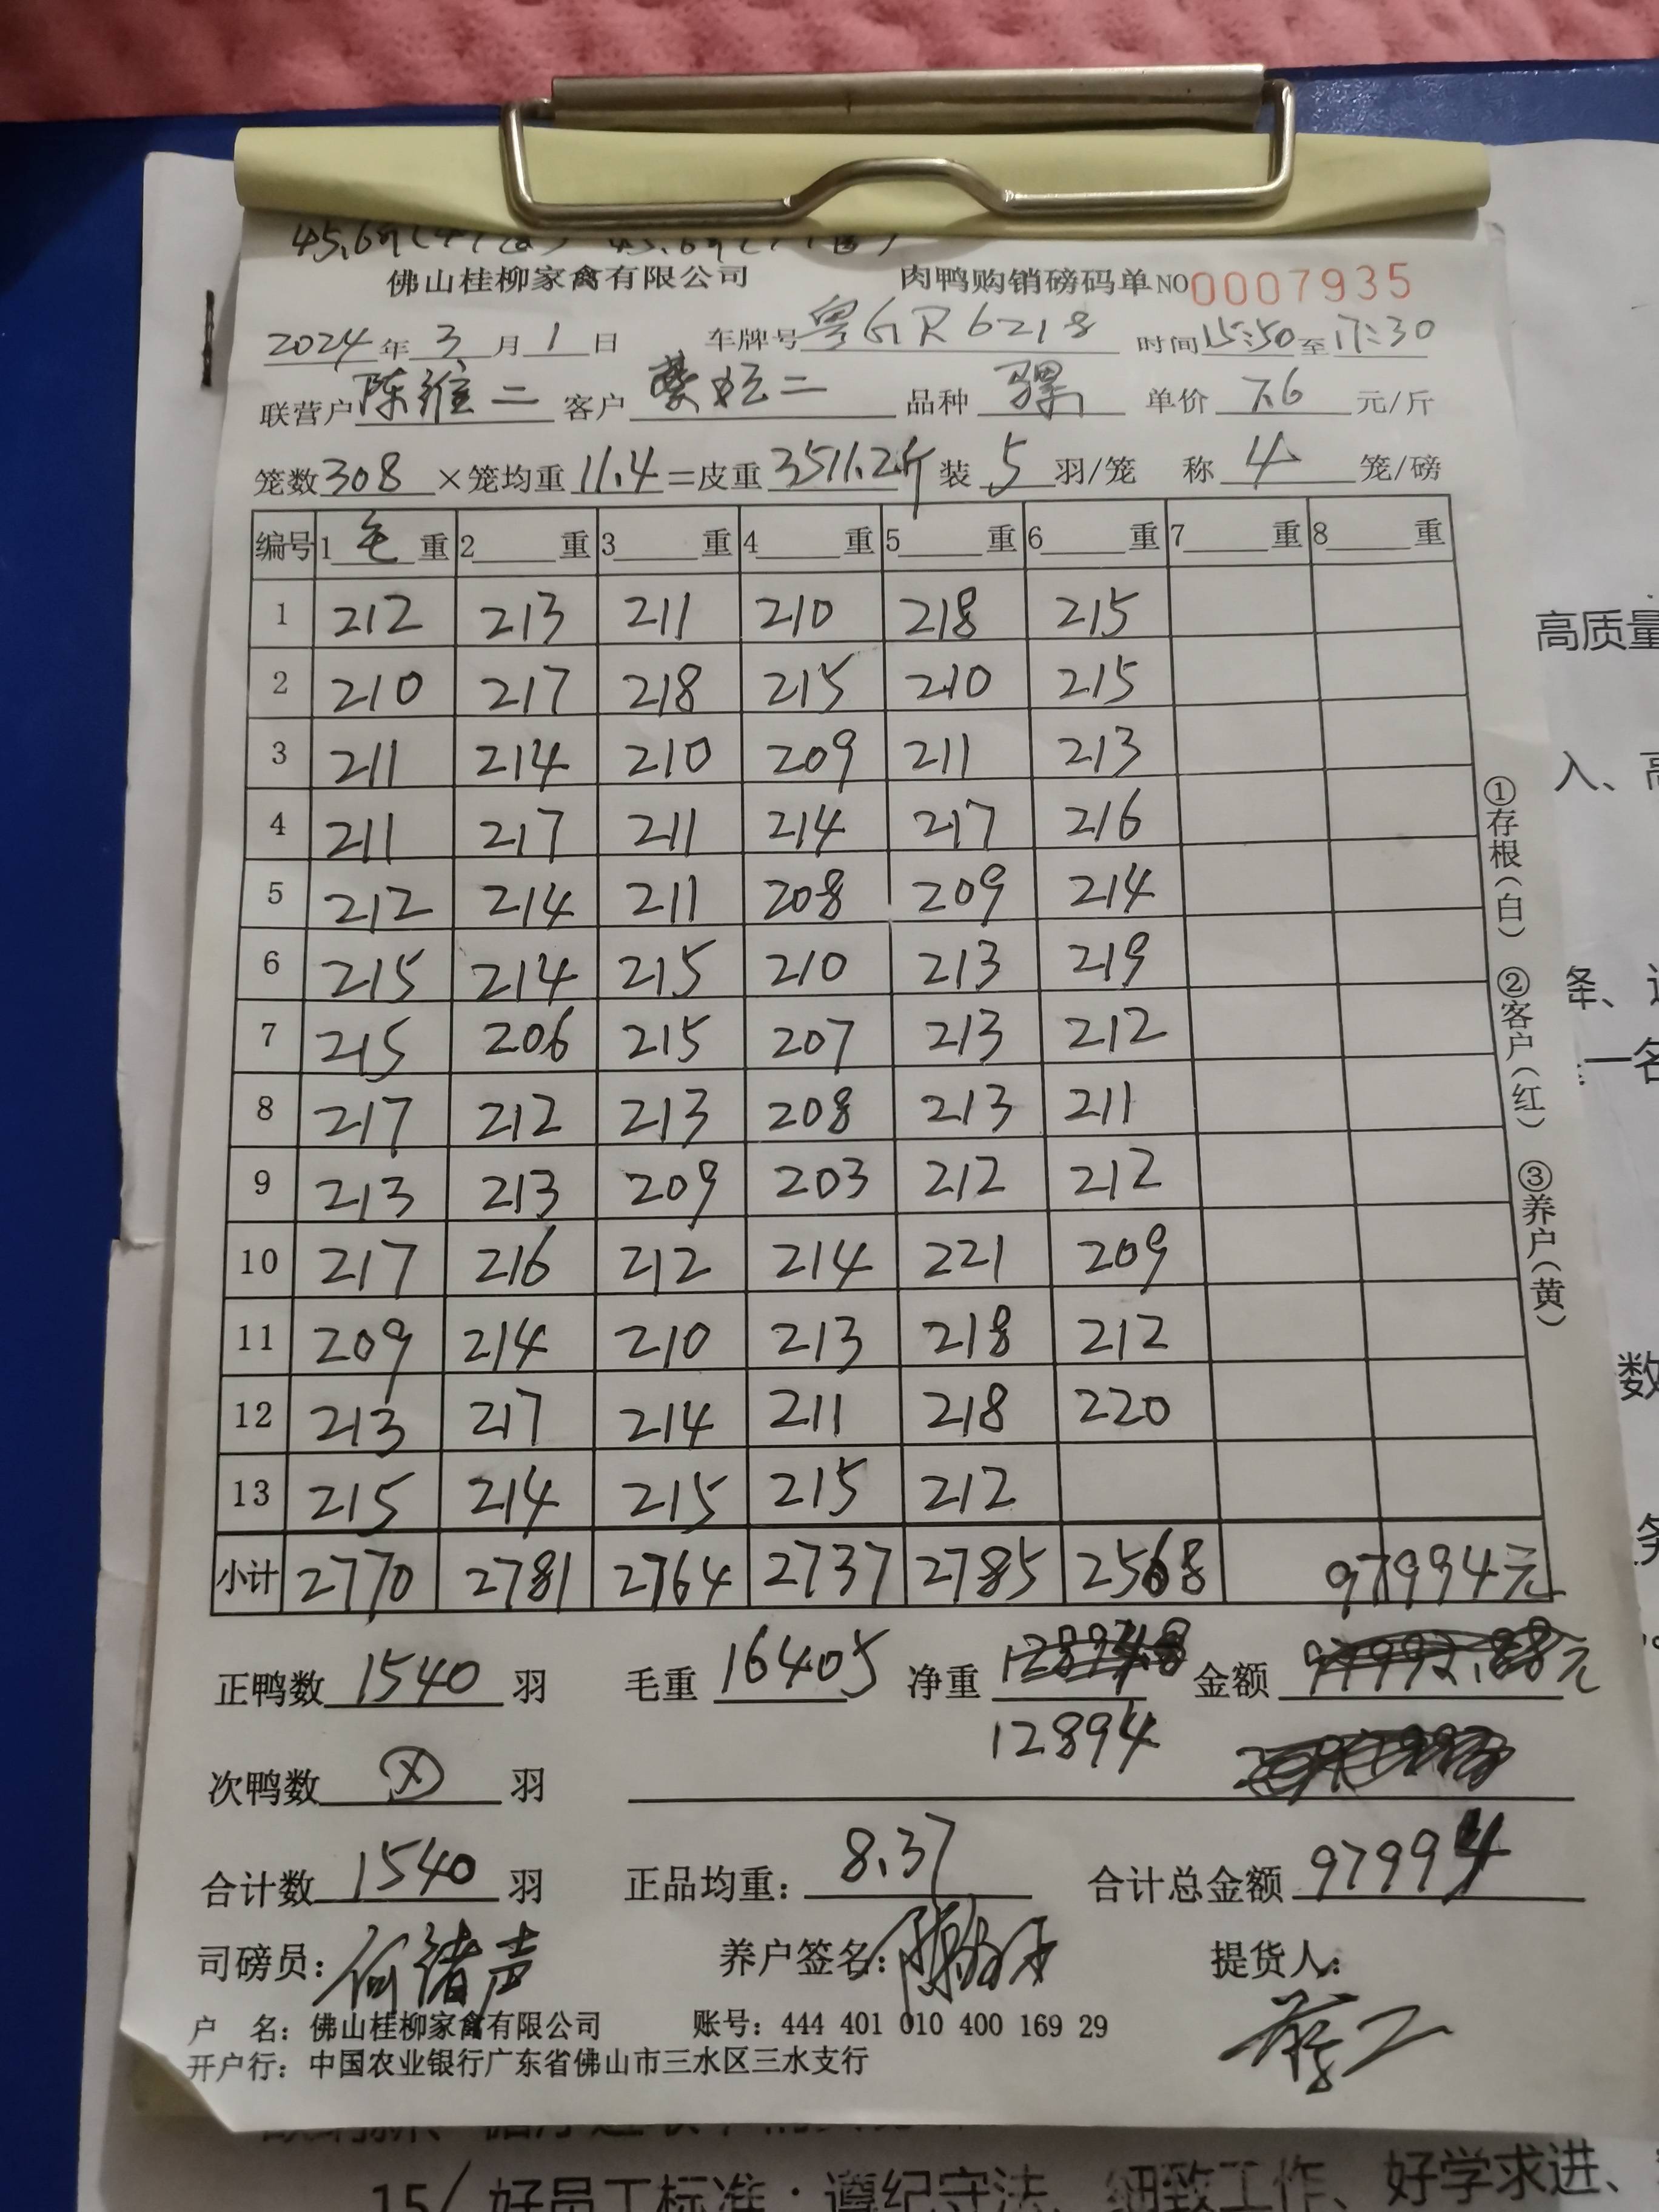 佛山桂柳家禽有限公司 肉鸭购销磅码单 NO 0007935
2024年3月1日 车牌号粤GR6218 时间15:50至17:30
联营户陈维二 客户 二 品种 骡 单价 7.6 元/斤
笼数308×笼均重11.4=皮重3511.2斤 装5羽/笼 称4笼/磅
编号 1毛重 2重 3重 4重 5重 6重 7重 8重
1 212 213 211 210 218 215
2 210 217 218 215 210 215
3 211 214 210 209 211 213
4 211 217 211 214 217 216
5 212 214 211 208 209 214
6 215 214 215 210 213 219
7 215 206 215 207 213 212
8 217 212 213 208 213 211
9 213 213 209 203 212 212
10 217 216 212 214 221 209
11 209 214 210 213 218 212
12 213 217 214 211 218 220
13 215 214 215 215 212
小计 2770 2781 2764 2737 2785 2568 97994元
正鸭数1540羽 毛重16405 净重 金额 元
12894
次鸭数 羽
合计数1540羽 正品均重：8.37 合计总金额97994
司磅员：何绪声 养户签名： 提货人：
户 名：佛山桂柳家禽有限公司 账号：444 401 010 400 169 29
开户行：中国农业银行广东省佛山市三水区三水支行
①存根(白) ②客户(红) ③养户(黄)
高质量
入、高
一名
数
15/ 好员工标准：遵纪守法、细致工作、好学求进、